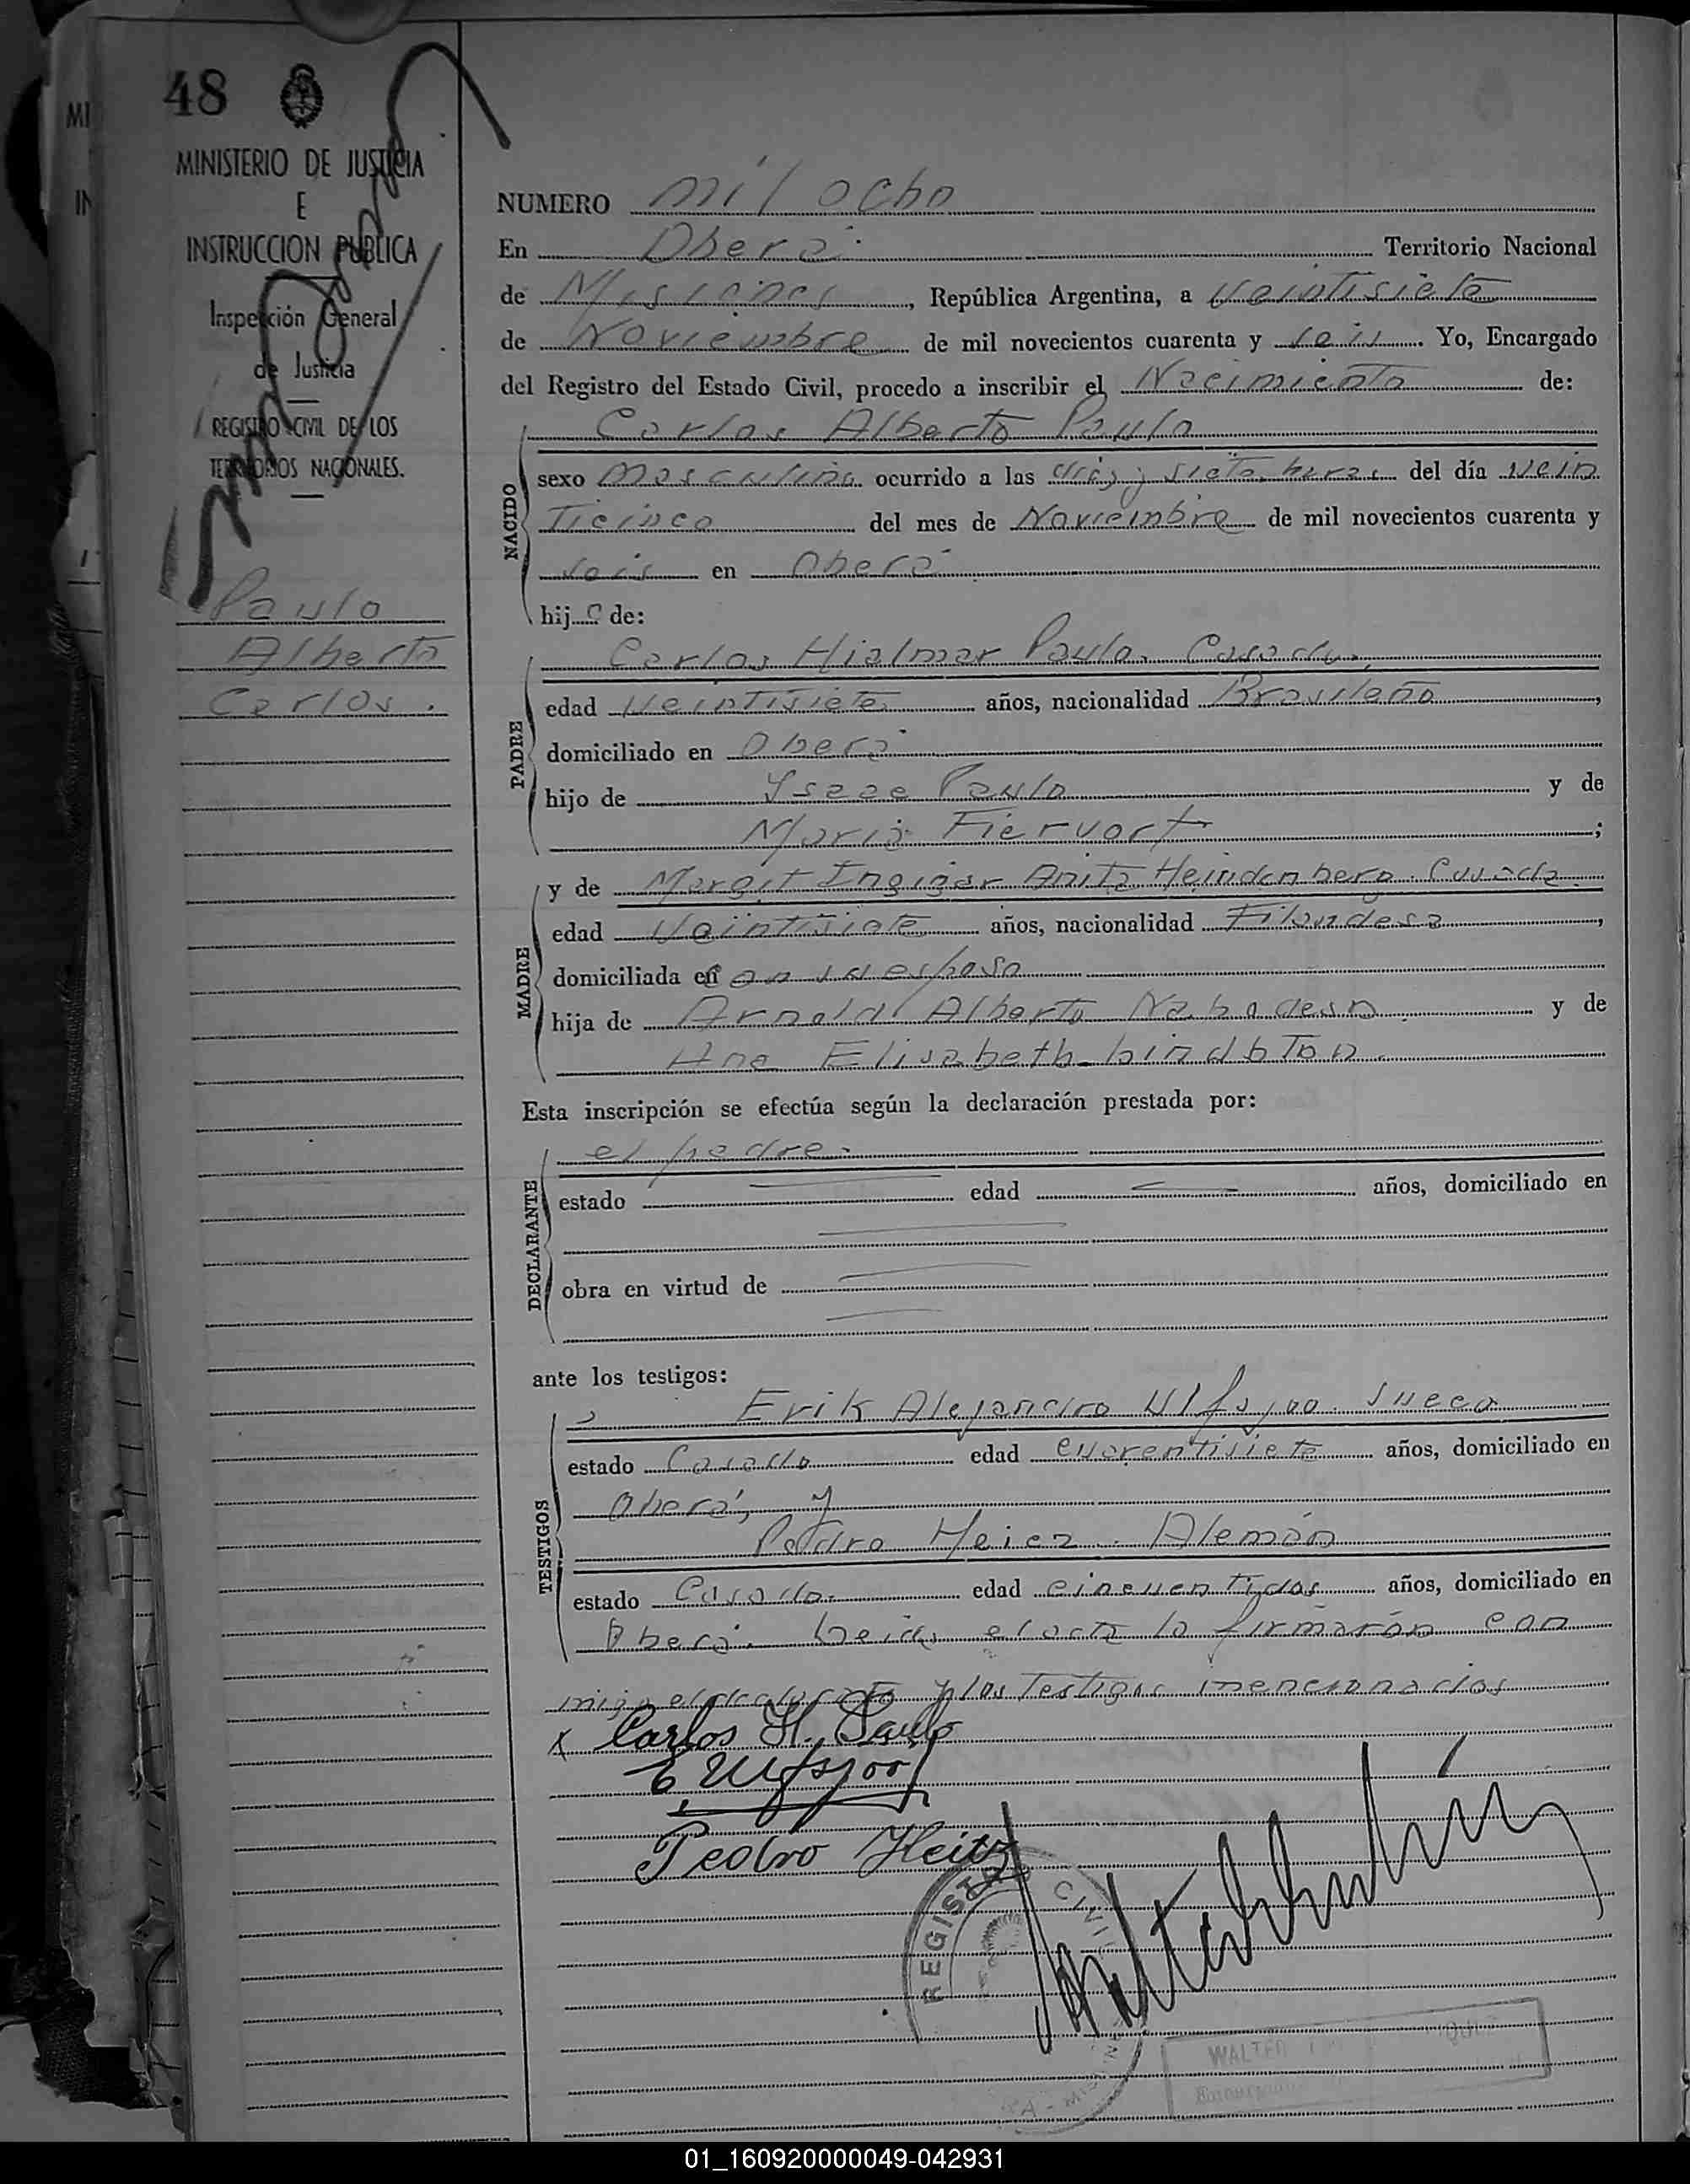 48
MINISTERIO DE JUSTICIA
E
INSTRUCCION PUBLICA
Inspección General
de Justicia
REGISTRO CIVIL DE LOS
TERRITORIOS NACIONALES.
Paulo
Alberto
Carlos.
NUMERO mil ocho
En Oberá Territorio Nacional
de Misiones, República Argentina, a veintisiete
de Noviembre de mil novecientos cuarenta y seis. Yo, Encargado
del Registro del Estado Civil, procedo a inscribir el Nacimiento de:
Carlos Alberto Paulo
NACIDO
sexo Masculino ocurrido a las diez y siete horas del día vein
ticinco del mes de Noviembre de mil novecientos cuarenta y
seis en Oberá
hijo de:
PADRE
Carlos Hialmar Paulo. Casado.
edad veintisiete años, nacionalidad Brasileño,
domiciliado en Oberá
hijo de Ysaac Paulo y de
Maria Fiervart;
MADRE
y de Margit Ingigar Anita Heindenberg. Casada
edad Veintisiete años, nacionalidad Filandesa,
domiciliada en con su esposo
hija de Arnold Alberto y de
Ana Elisabeth
Esta inscripción se efectúa según la declaración prestada por:
DECLARANTE
el padre.
estado edad años, domiciliado en
obra en virtud de
ante los testigos:
TESTIGOS
Erik Alejandro Ulfsjoo. Sueco
estado Casado edad cuarentisiete años, domiciliado en
Oberá, y
Pedro Heiez. Alemán
estado Casado. edad cincuentidos años, domiciliado en
Oberá. Leida el acta la firmarón con
migo el declarante y los testigos mencionados
x Carlos H. Paulo
E Ulfsjoo
Pedro Heitz
REGISTRO CIVIL
WALTER
01_160920000049-042931